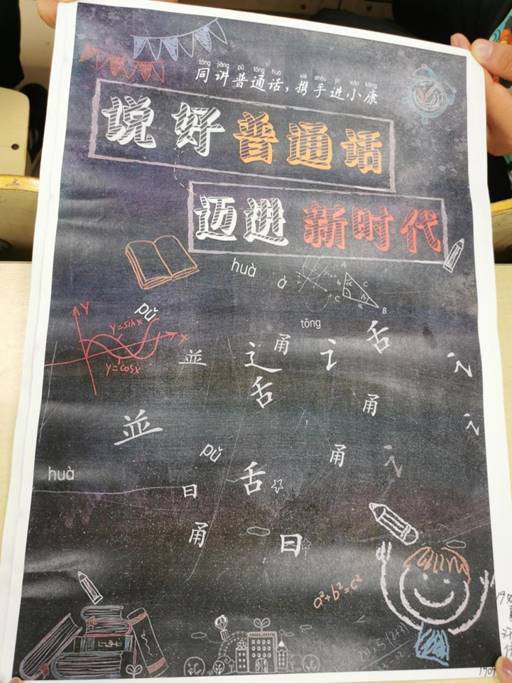 tóng jiǎng pǔ tōng huà xié shǒu jìn xiǎo kāng
同讲普通话，携手进小康
说好普通话
迈进新时代
huà
A
c
B
pǔ
Y
y=sinx
X
y=cosx
tōng
並
辶
甬
讠
舌
舌
讠
並
甬
讠
pǔ
甬
讠
huà
日
舌
甬
日
a²+b²=c²